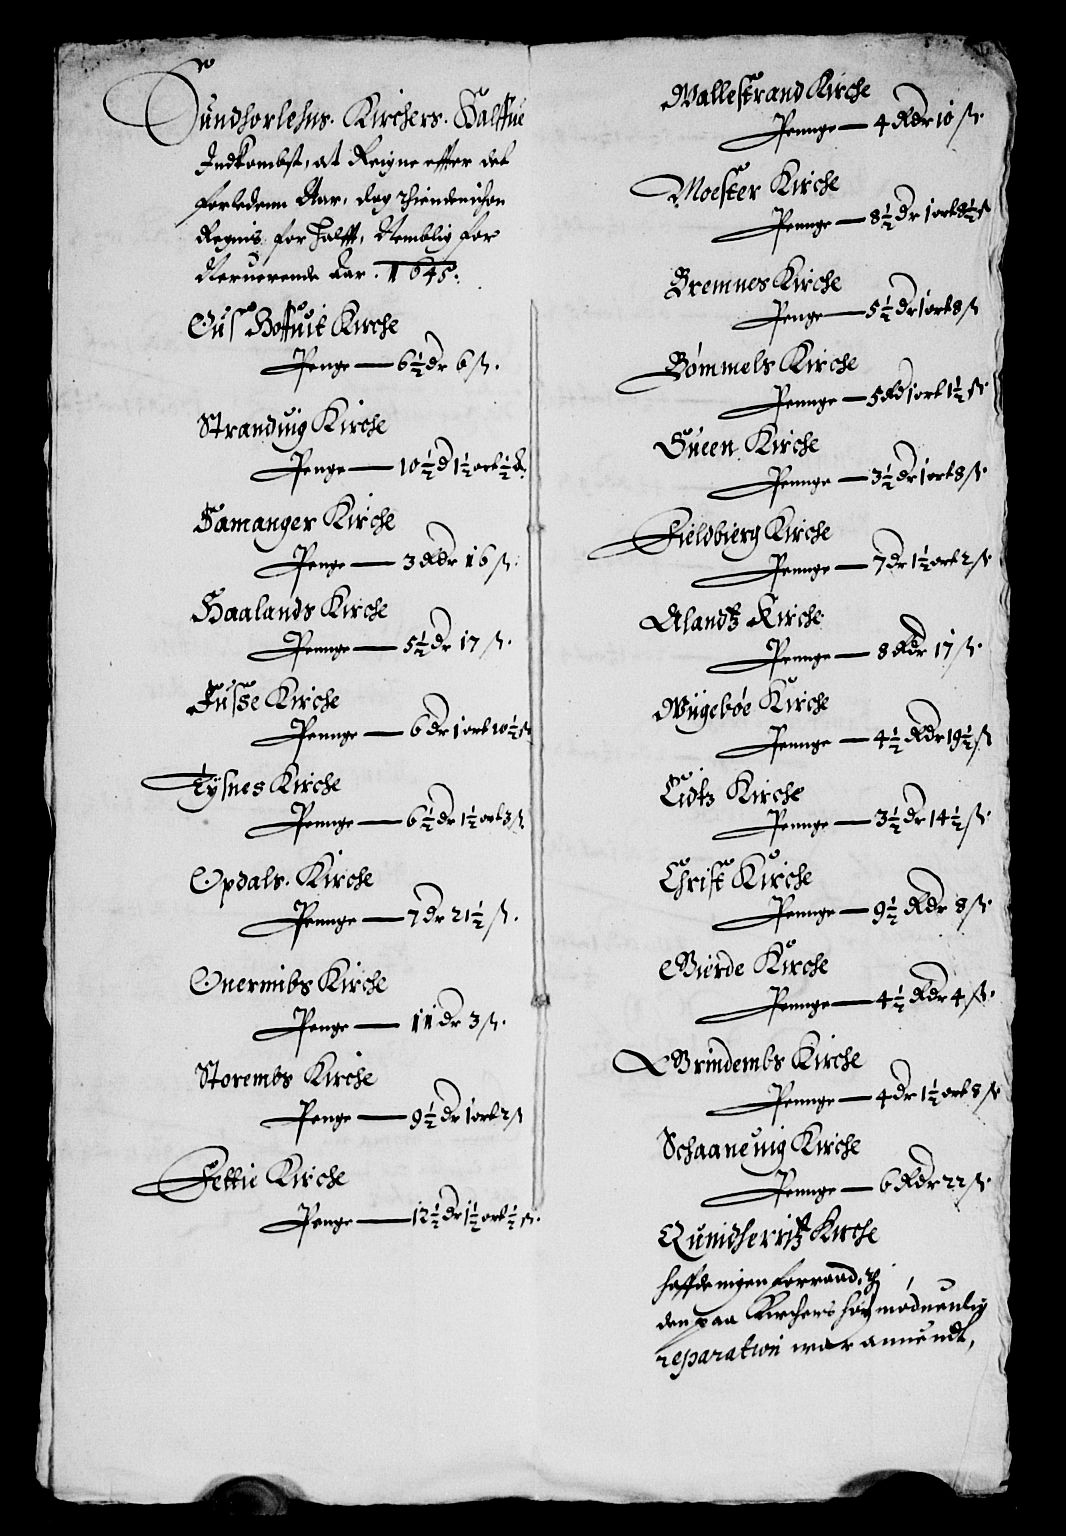 Sundhorlehns Kirchers Halffue
Indkombst, at Reigne effter det
forledenn Aar, dog thiendenichon
Regnis for halfft, Nemblig for
Neruerende Aar 1645:
Ous Hoffuit Kirche
Penge — 6½ dr 6 ß.
Stranduig Kirche
Penge — 10½ d 1½ ort ½ ß.
Samanger Kirche
Penge — 3 Rdr 16 ß.
Haalands Kirche
Pennge — 5½ dr 17 ß.
Fusse Kirche
Pennge — 6 dr 1 ort 10½ ß
Tysnes Kirche
Pennge — 6½ dr 1½ ort 3 ß.
Opdals Kirche
Pennge — 7 dr 21½ ß.
Onermibs Kirche
Penge — 11 dr 3 ß.
Storembs Kirche
Penge — 9½ dr 1 ort 2 ß
Fettie Kirche
Penge — 12½ dr 1½ ort ½ ß.
Wallestrand Kirche
Pennge — 4 Rdr 10 ß.
Moester Kirche
Pennge — 8½ dr 1 ort 8½ ß
Bremnes Kirche
Penge — 5½ dr 1 ort 8 ß
Bömmels Kirche
Pennge — 5 Rd 1 ort 1½ ß.
Sueen Kirche
Pennge — 3½ dr 1 ort 8 ß.
Fieldbierg Kirche
Pennge — 7 dr 1½ ort 2 ß
Alandtz Kirche
Pennge — 8 Rdr 17 ß.
Wügebøe Kirche
Pennge — 4½ Rdr 19½ ß
Eidtz Kirche
Pennge — 3½ dr 14½ ß.
Christ Kirche
Pennge — 9½ Rdr 8 ß.
Gierde Kirche
Pennge — 4½ Rdr 4 ß.
Grindembs Kirche
Pennge — 4 dr 1½ ort 8 ß
Schaaneuig Kirche
Pennge — 6 Rdr 22 ß.
Quindherritz Kirche
haffde ingen forraad, th
den paa Kirchens høy nøduendig
reparation war anuendt,